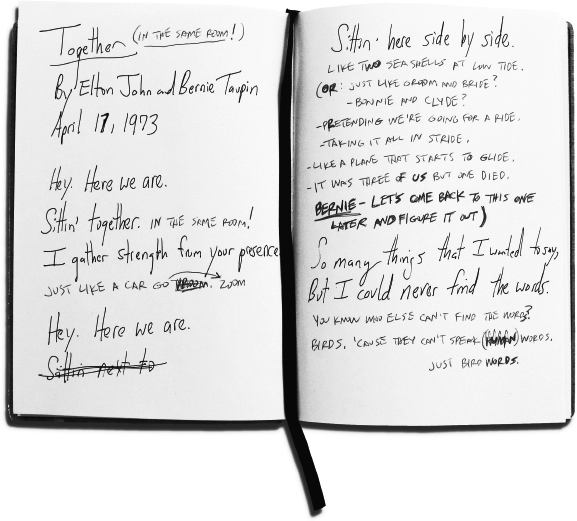 Together (IN THE SAME ROOM!)
By Elton John and Bernie Taupin
April 17, 1973
Hey. Here we are.
Sittin' together. IN THE SAME ROOM!
I gather strength from your presence
JUST LIKE A CAR GO VROOM. ZOOM
Hey. Here we are.
Sittin next to
Sittin' here side by side.
LIKE TWO SEASHELLS AT LOW TIDE.
(OR: JUST LIKE GROOM AND BRIDE?
- BONNIE AND CLYDE?
- PRETENDING WE'RE GOING FOR A RIDE.
- TAKING IT ALL IN STRIDE.
- LIKE A PLANE THAT STARTS TO GLIDE.
- IT WAS THREE OF US BUT ONE DIED.
BERNIE - LET'S COME BACK TO THIS ONE
LATER AND FIGURE IT OUT)
So many things that I wanted to say,
But I could never find the words.
YOU KNOW WHO ELSE CAN'T FIND THE WORDS?
BIRDS. 'CAUSE THEY CAN'T SPEAK (HUMAN) WORDS.
JUST BIRD WORDS.